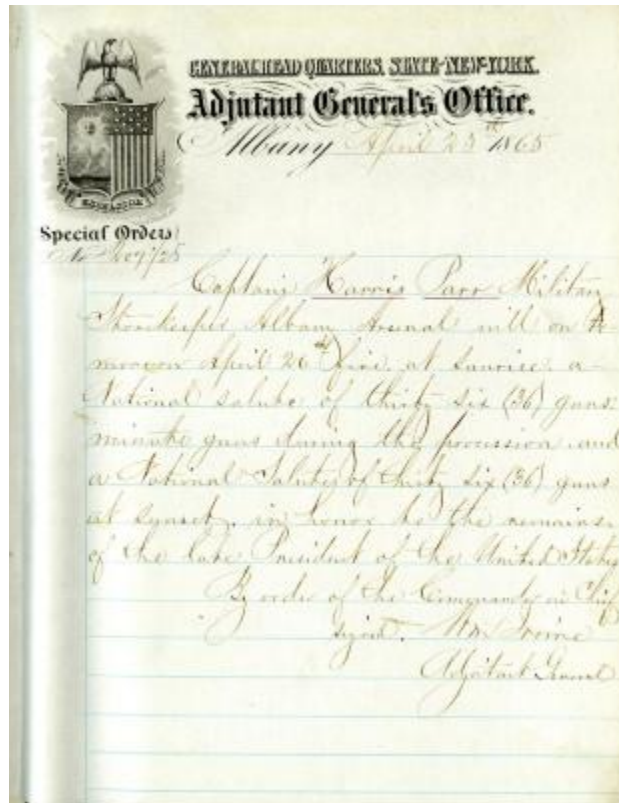 GENERAL HEAD QUARTERS, STATE NEW-YORK.
Adjutant General's Office.
Albany April 25th 1865
EXCELSIOR
Special Orders
No
Captain Harris Parr Military
Storekeeper Albany Arsenal will on to
morrow April 26th fire, at sunrise, a
National salute of thirty six (36) guns:
minute guns during the procession and
a National Salute of thirty six (36) guns
at sunset, in honor to the remains
of the late President of the United States
By order of the Commander in Chief
signed. Wm Irvine
Adjutant General